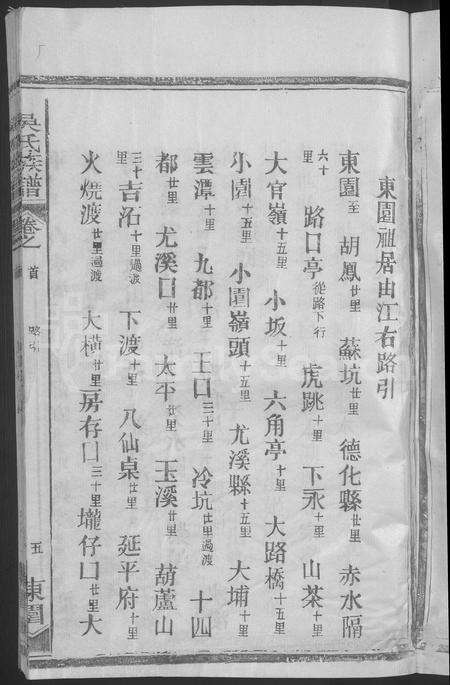 東園祖居由江右路引
東園至 胡鳳廿里 蘇坑廿里 德化縣廿里 赤水隔
六十里 路口亭從路下行 虎跳十里 下永十里 山茶十里
大官嶺十五里 小坂十里 六角亭十里 大路橋十五里
小園十五里 小園嶺頭十五里 尤溪縣十五里 大埔十里
雲潭十里 九都十里 王口三十里 冷坑廿里過渡 十四
都廿里 尤溪口廿里 太平廿里 玉溪廿里 葫蘆山
三十里 吉沄十里過渡 下渡十里 八仙桌廿里 延平府十里
火燒渡廿里過渡 大橫廿里 房存口三十里 壠仔口廿里 大
吳氏族譜 卷之首 路引 五 東園